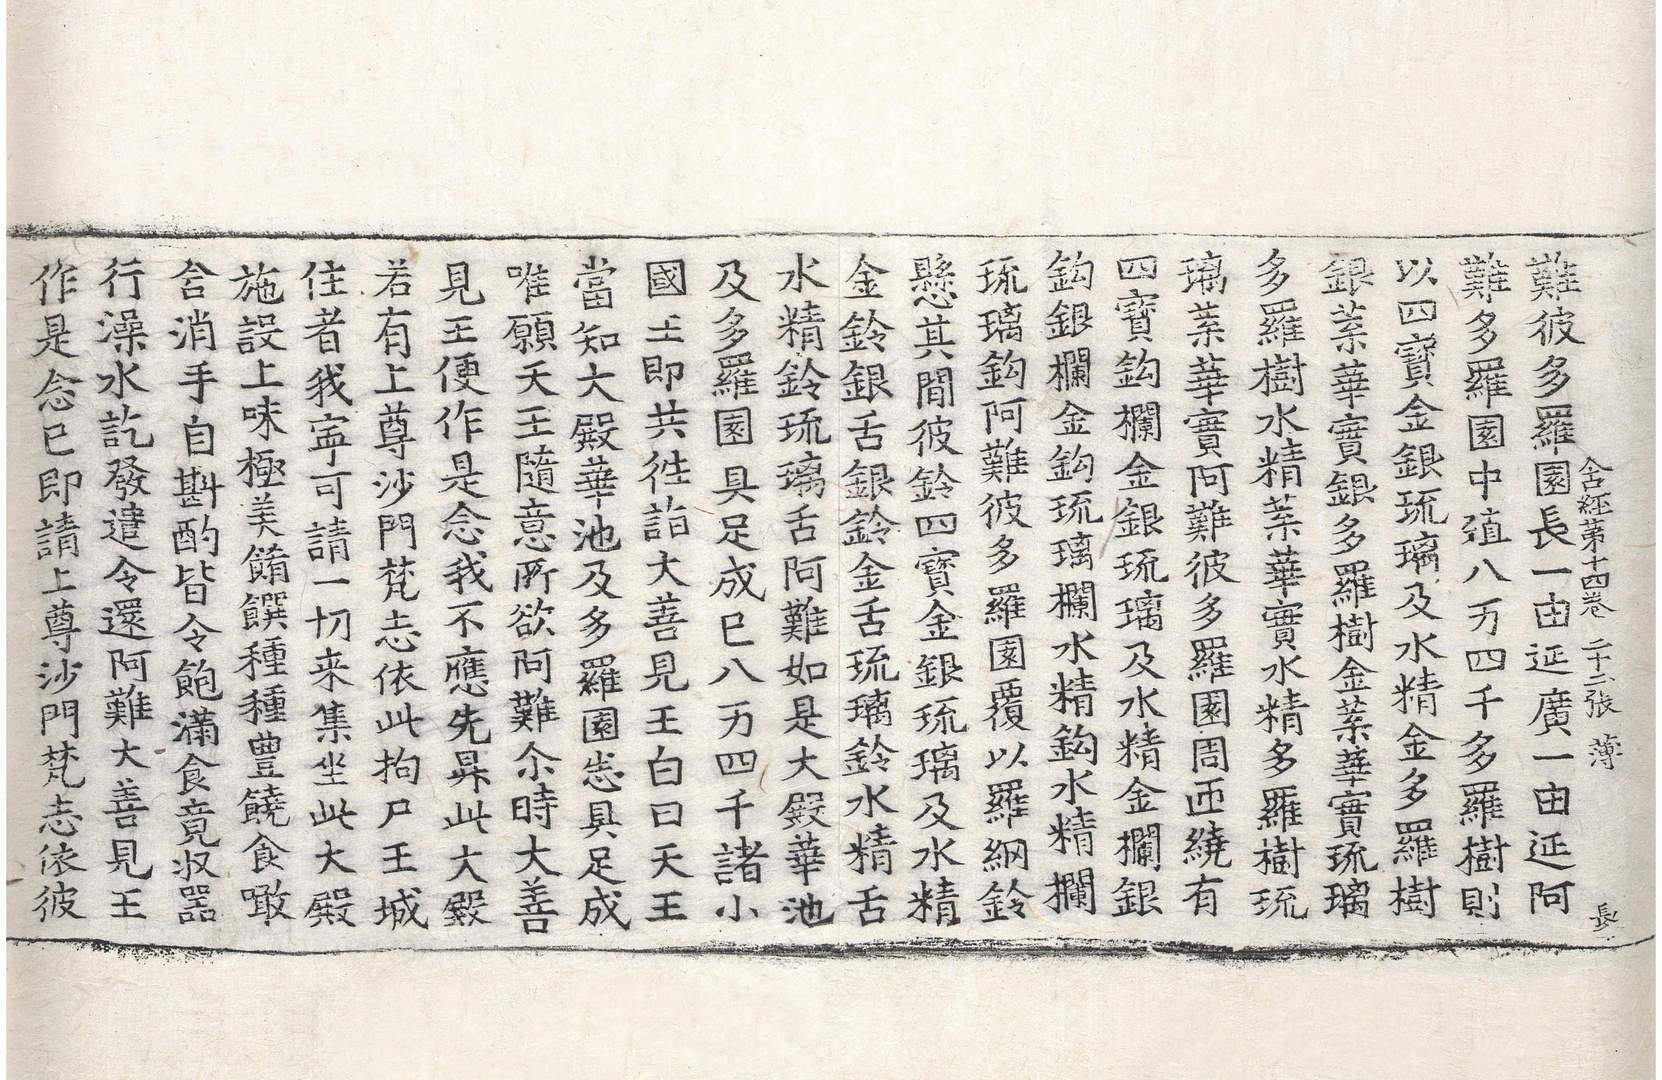 含經第十四卷 二十二張 薄 長
難彼多羅園長一由延廣一由延阿
難多羅園中殖八万四千多羅樹則
以四寶金銀琉璃及水精金多羅樹
銀葉華實銀多羅樹金葉華實琉璃
多羅樹水精葉華實水精多羅樹琉
璃葉華實阿難彼多羅園周迊繞有
四寶鈎欄金銀琉璃及水精金欄銀
鈎銀欄金鈎琉璃欄水精鈎水精欄
琉璃鈎阿難彼多羅園覆以羅網鈴
懸其間彼鈴四寶金銀琉璃及水精
金鈴銀舌銀鈴金舌琉璃鈴水精舌
水精鈴琉璃舌阿難如是大殿華池
及多羅園具足成已八万四千諸小
國王即共往詣大善見王白曰天王
當知大殿華池及多羅園悉具足成
唯願天王隨意所欲阿難尒時大善
見王便作是念我不應先昇此大殿
若有上尊沙門梵志依此拘尸王城
住者我寜可請一切来集坐此大殿
施設上味極美餚饌種種豊饒食噉
含消手自斟酌皆令飽滿食竟収器
行澡水訖發遣令還阿難大善見王
作是念已即請上尊沙門梵志依彼